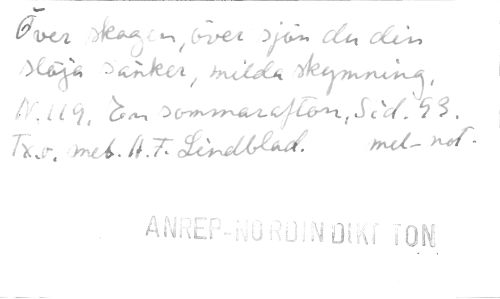 Över skogen, över sjön du din
slöja sänker, milda skymning.
N. 119. En sommarafton, Sid. 93.
Tx. o. mel. A. F. Lindblad. mel-not.
ANREP-NORDIN DIKT TON